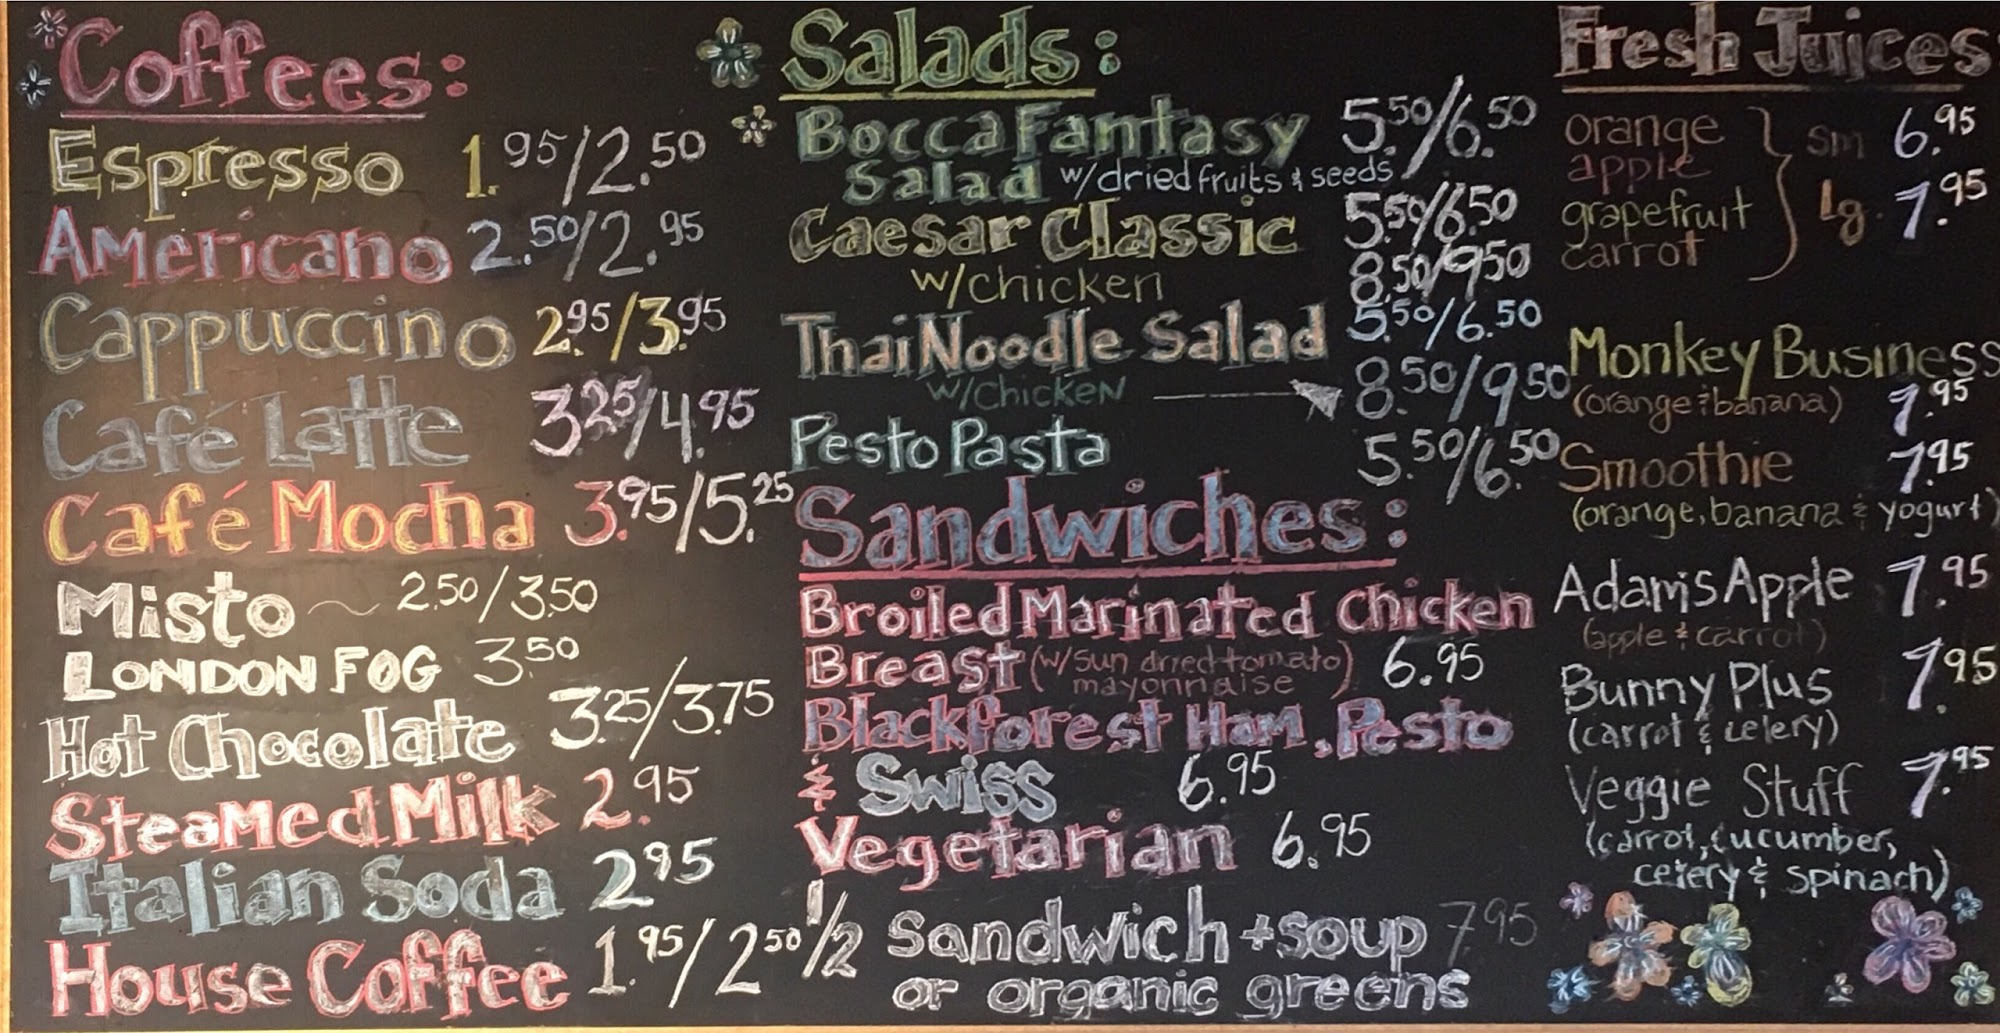 Coffees:
Espresso 1.95/2.50
Americano 2.50/2.95
Cappuccino 2.95/3.95
Café Latte 3.25/4.95
Café Mocha 3.95/5.25
Misto ~ 2.50/3.50
LONDON FOG 3.50
Hot Chocolate 3.25/3.75
Steamed Milk 2.95
Italian Soda 2.95
House Coffee 1.95/2.50
Salads:
Bocca Fantasy 5.50/6.50
Salad w/dried fruits & seeds
Caesar Classic 5.50/6.50
w/chicken 8.50/9.50
Thai Noodle Salad 5.50/6.50
w/chicken 8.50/9.50
Pesto Pasta 5.50/6.50
Sandwiches:
Broiled Marinated Chicken
Breast (w/sun dried tomato 6.95
mayonnaise)
Blackforest Ham, Pesto
& Swiss 6.95
Vegetarian 6.95
1/2 Sandwich + soup 7.95
or organic greens
Fresh Juices
orange sm 6.95
apple
grapefruit lg. 7.95
carrot
Monkey Business
(orange & banana) 7.95
Smoothie 7.95
(orange, banana & yogurt)
Adam's Apple 7.95
(apple & carrot)
Bunny Plus 7.95
(carrot & celery)
Veggie Stuff 7.95
(carrot, cucumber,
celery & spinach)